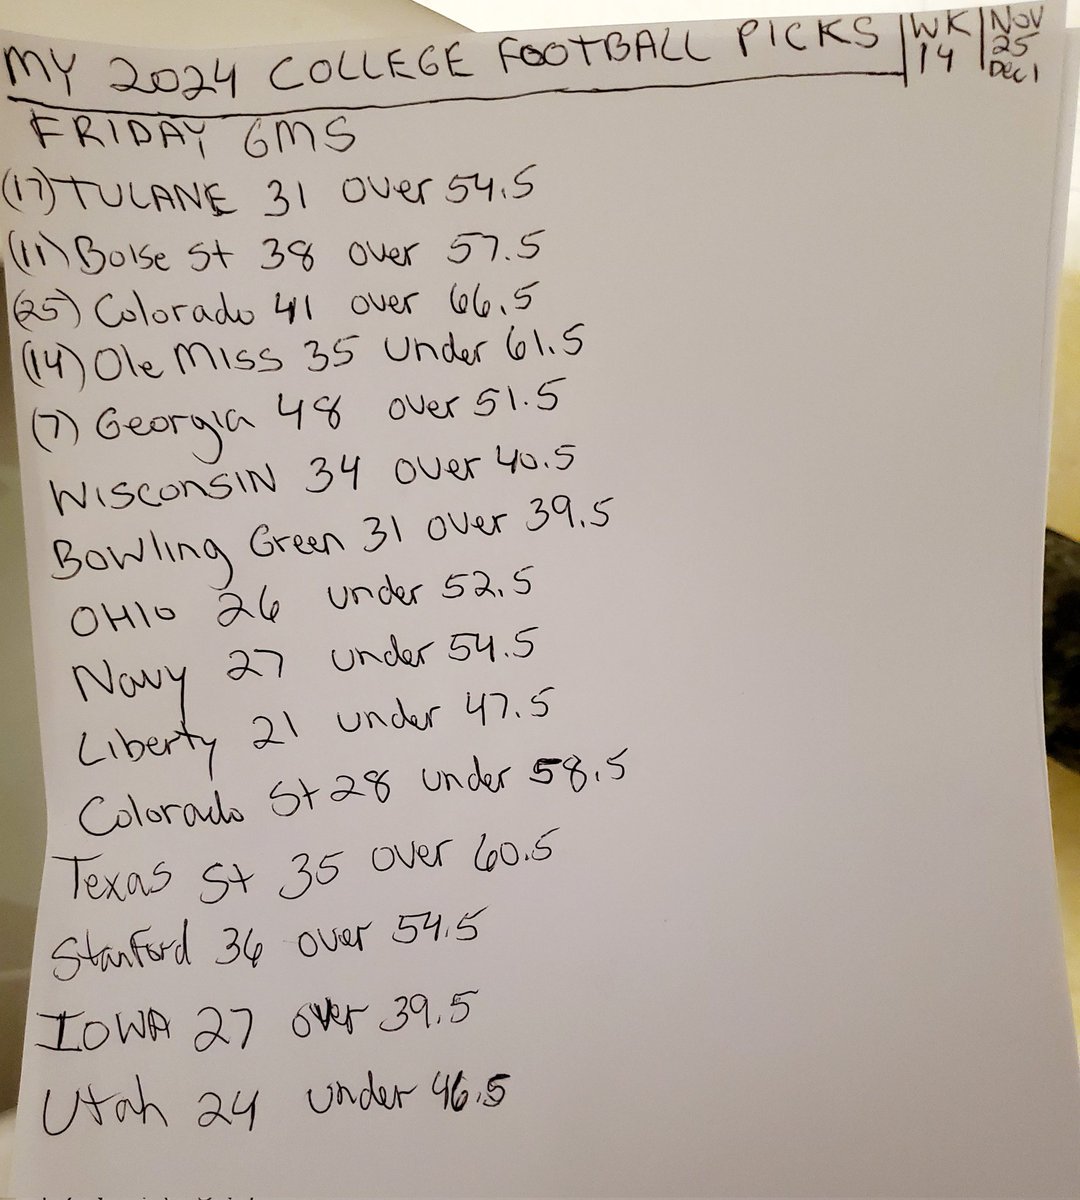 MY 2024 COLLEGE FOOTBALL PICKS
WK 14
NOV 25 DEC 1
FRIDAY GMS
(17) TULANE 31 over 54.5
(11) Boise St 38 over 57.5
(25) Colorado 41 over 66.5
(14) Ole Miss 35 under 61.5
(7) Georgia 48 over 51.5
WISCONSIN 34 over 40.5
Bowling Green 31 over 39.5
OHIO 26 under 52.5
Navy 27 under 54.5
Liberty 21 under 47.5
Colorado St 28 under 58.5
Texas St 35 over 60.5
Stanford 36 over 54.5
IOWA 27 over 39.5
Utah 24 under 46.5